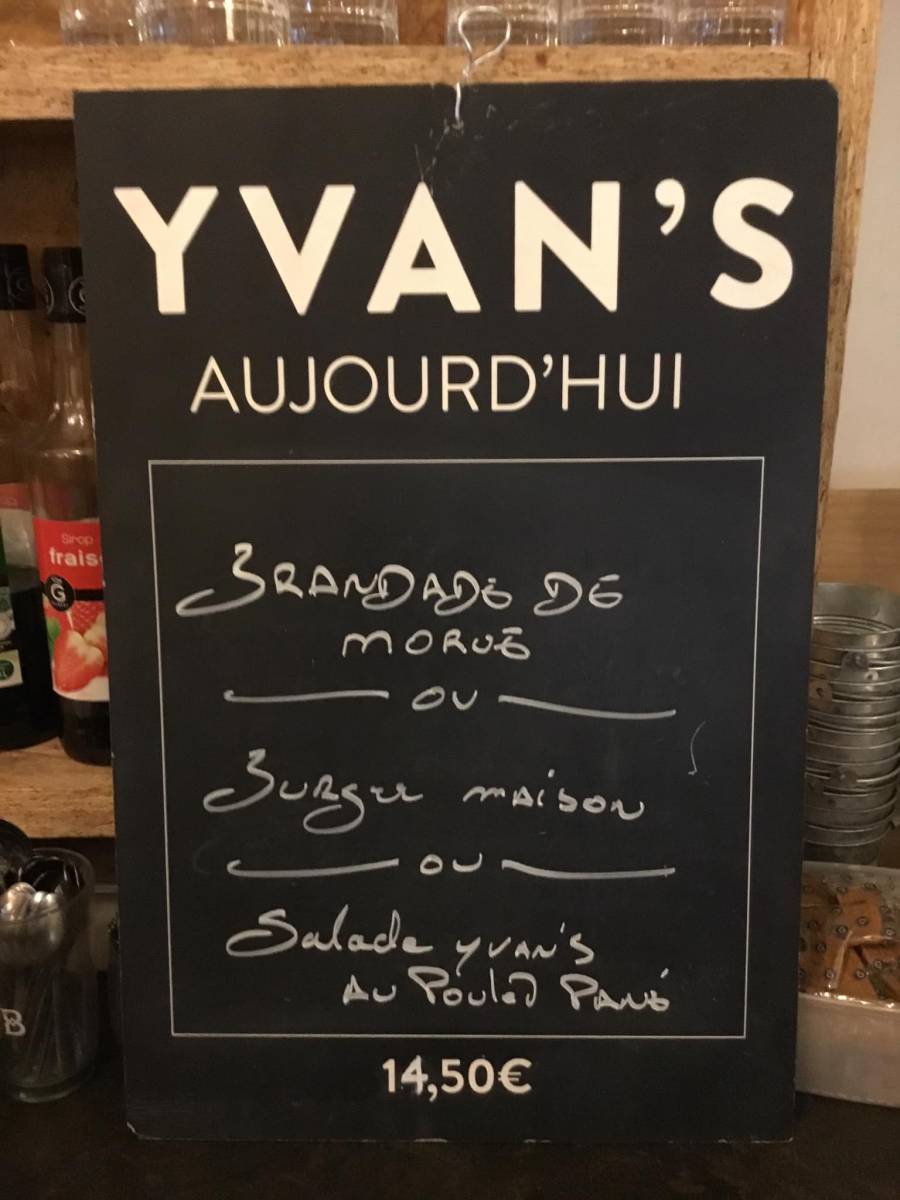 YVAN'S
AUJOURD'HUI
BRANDADE DE
MORUE
OU
Burger maison
OU
Salade YVAN'S
AU Poulet PANÉ
14,50€
Sirop
frais
G
B